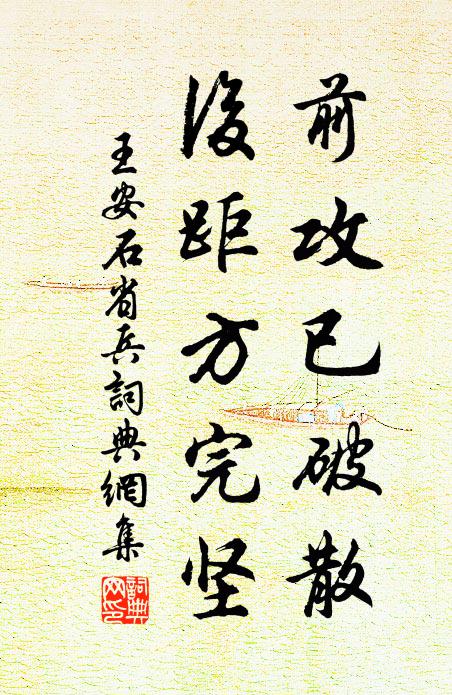 前攻已破散
後距方完坚
王安石省兵詞典網集
詞典
网印